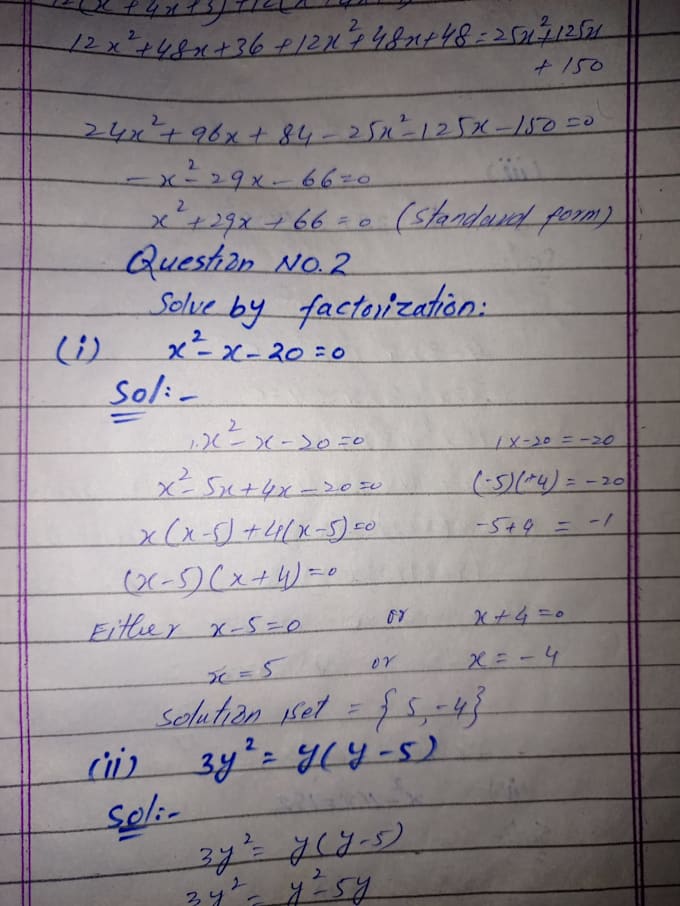 12x²+48x+36+12x²+48x+48=25x²+125x
+150
24x²+96x+84-25x²-125x-150=0
-x²-29x-66=0
x²+29x+66=0 (Standard form)
Question NO.2
Solve by factorization:
(i) x²-x-20=0
Sol:-
x²-x-20=0 1x-20=-20
x²-5x+4x-20=0 (-5)(+4)=-20
x(x-5)+4(x-5)=0 -5+4 = -1
(x-5)(x+4)=0
Either x-5=0 or x+4=0
x=5 or x=-4
Solution set = {5,-4}
(ii) 3y²= y(y-5)
Sol:-
3y²= y(y-5)
3y²= y²-5y